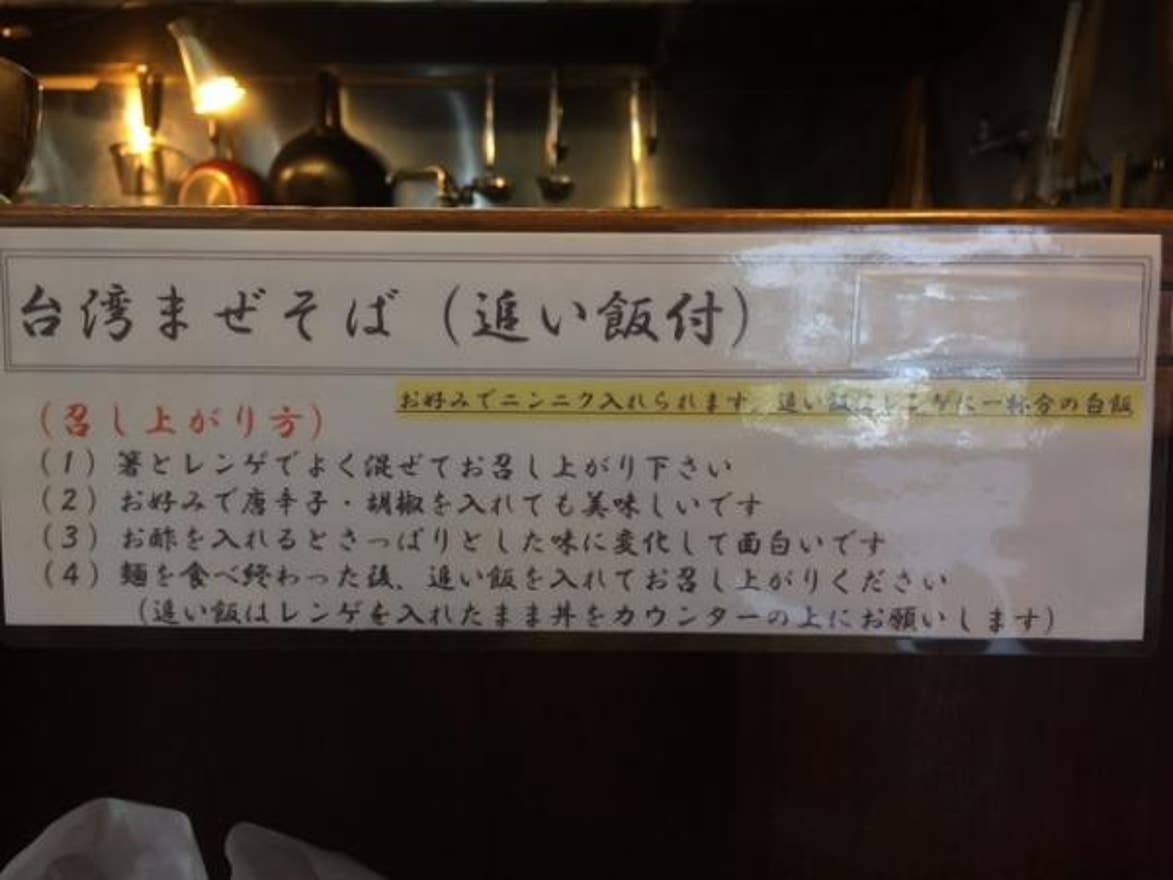 台湾まぜそば（追い飯付）
お好みでニンニク入れられます 追い飯はレンゲに一杯分の白飯
（召し上がり方）
（1）箸とレンゲでよく混ぜてお召し上がり下さい
（2）お好みで唐辛子・胡椒を入れても美味しいです
（3）お酢を入れるとさっぱりとした味に変化して面白いです
（4）麺を食べ終わった後、追い飯を入れてお召し上がりください
（追い飯はレンゲを入れたまま丼をカウンターの上にお願いします）